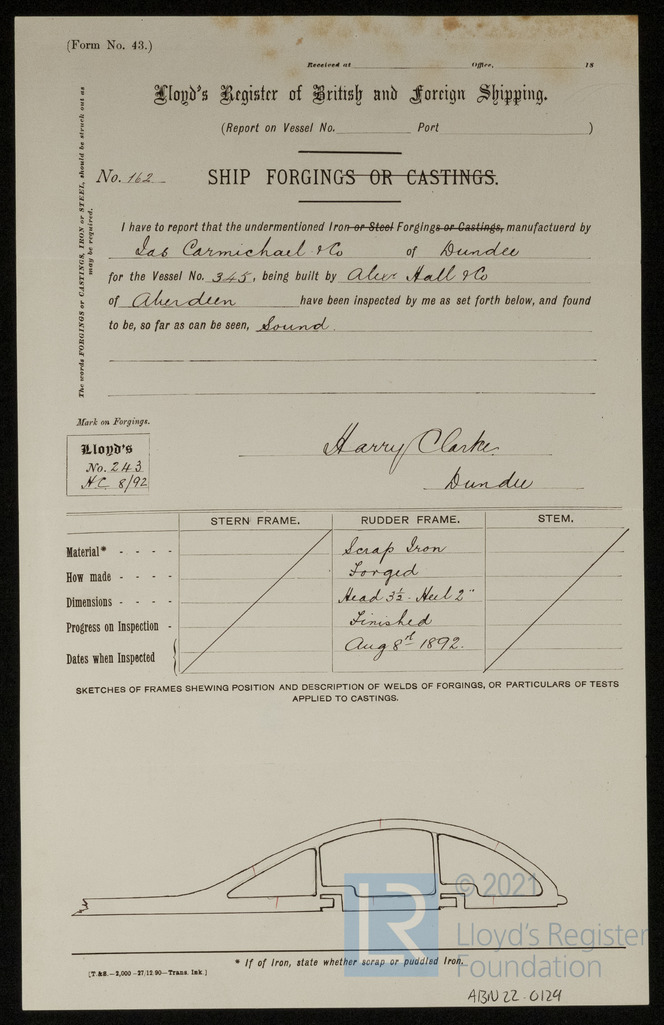 (Form No. 43.)
Received at Office, 18
Lloyd's Register of British and Foreign Shipping.
(Report on Vessel No. Port )
No. 162 SHIP FORGINGS OR CASTINGS.
The words FORGINGS or CASTINGS, IRON or STEEL, should be struck out as
may be required.
I have to report that the undermentioned Iron or Steel Forgings or Castings, manufactuerd by
Jas Carmichael & Co of Dundee
for the Vessel No. 345, being built by Alexr Hall & Co
of Aberdeen have been inspected by me as set forth below, and found
to be, so far as can be seen, Sound.
Mark on Forgings.
Lloyd's
No. 243
H.C. 8/92
Harry Clarke
Dundee
STERN FRAME. RUDDER FRAME. STEM.
Material* - - - - Scrap Iron
How made - - - - Forged
Dimensions - - - - Head 3½ - Heel 2"
Progress on Inspection - Finished
Dates when Inspected Aug 8th 1892.
SKETCHES OF FRAMES SHEWING POSITION AND DESCRIPTION OF WELDS OF FORGINGS, OR PARTICULARS OF TESTS
APPLIED TO CASTINGS.
© 2021
LR
Lloyd's Register
Foundation
* If of Iron, state whether scrap or puddled Iron.
[T.&S.—2,000—27.12.90—Trans. Ink.]
ABN22-0129